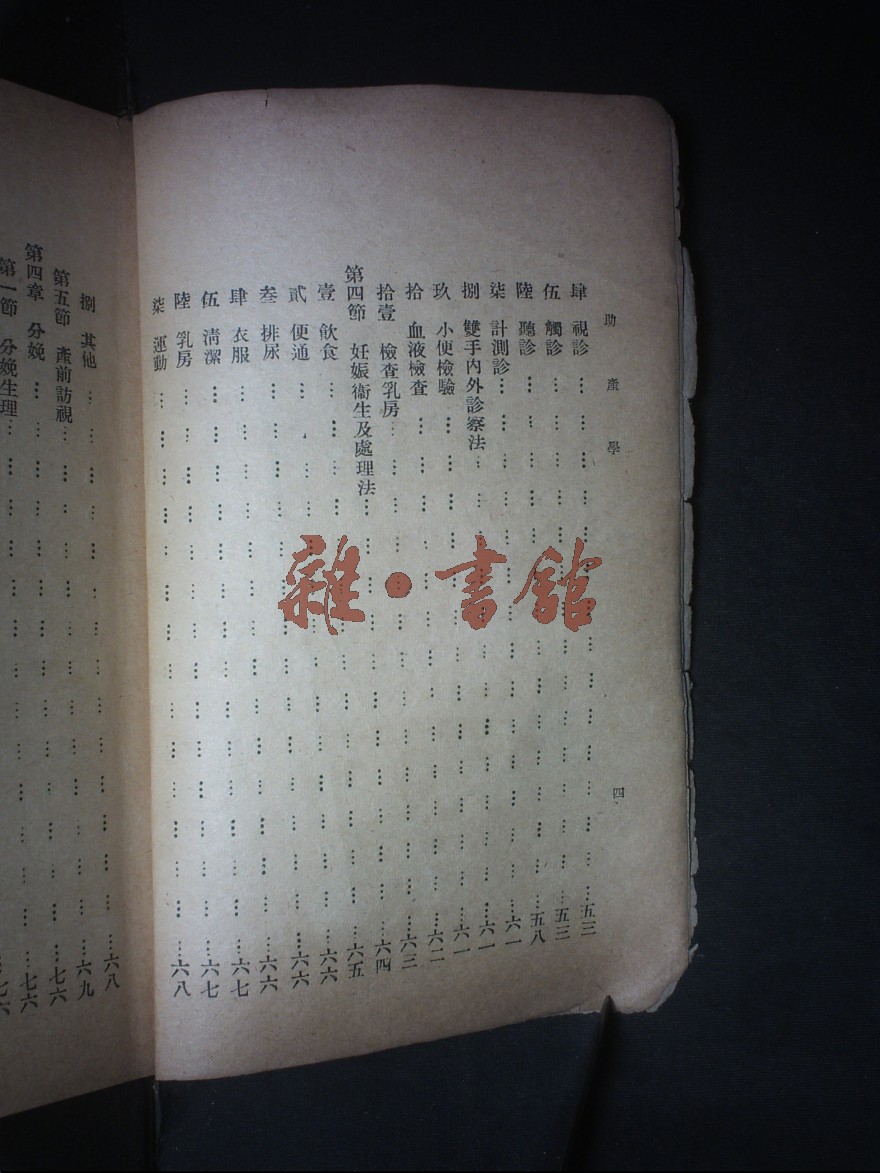 助產學
四
肆 視診…五三
伍 觸診…五三
陸 聽診…五八
柒 計測診…六一
捌 雙手內外診察法…六一
玖 小便檢驗…六二
拾 血液檢查…六三
拾壹 檢查乳房…六四
第四節 妊娠衞生及處理法…六五
壹 飲食…六六
貳 便通…六六
叁 排尿…六六
肆 衣服…六七
伍 清潔…六七
陸 乳房…六八
柒 運動
捌 其他…六八
第五節 產前訪視…六九
第四章 分娩…七六
第一節 分娩生理…七六
雜·書館